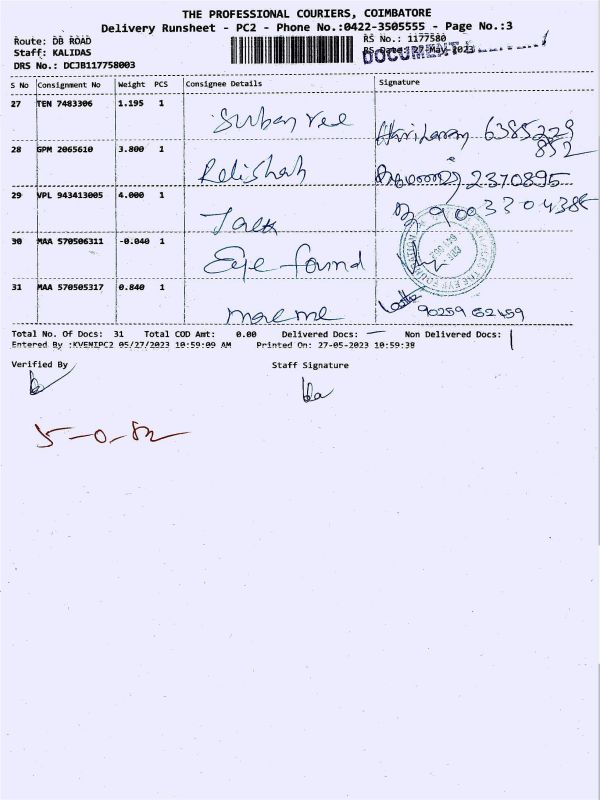 THE PROFESSIONAL COURIERS, COIMBATORE
Delivery Runsheet - PC2 - Phone No.:0422-3505555 - Page No.:3
Route: DB ROAD RS No.: 1177580
Staff: KALIDAS RS Date: 27-May-2023
DRS No.: DCJB117758003
S No Consignment No Weight PCS Consignee Details Signature
27 TEN 7483306 1.195 1
Hariharan 6385229
852
28 GPM 2065610 3.800 1
Relishah 2370895
29 VPL 943413005 4.000 1
90033 04385
30 MAA 570506311 -0.040 1
Eye found
31 MAA 570505317 0.840 1
90259 52159
Total No. Of Docs: 31 Total COD Amt: 0.00 Delivered Docs: — Non Delivered Docs: |
Entered By :KVEMIPC2 05/27/2023 10:59:09 AM Printed On: 27-05-2023 10:59:38
Verified By Staff Signature